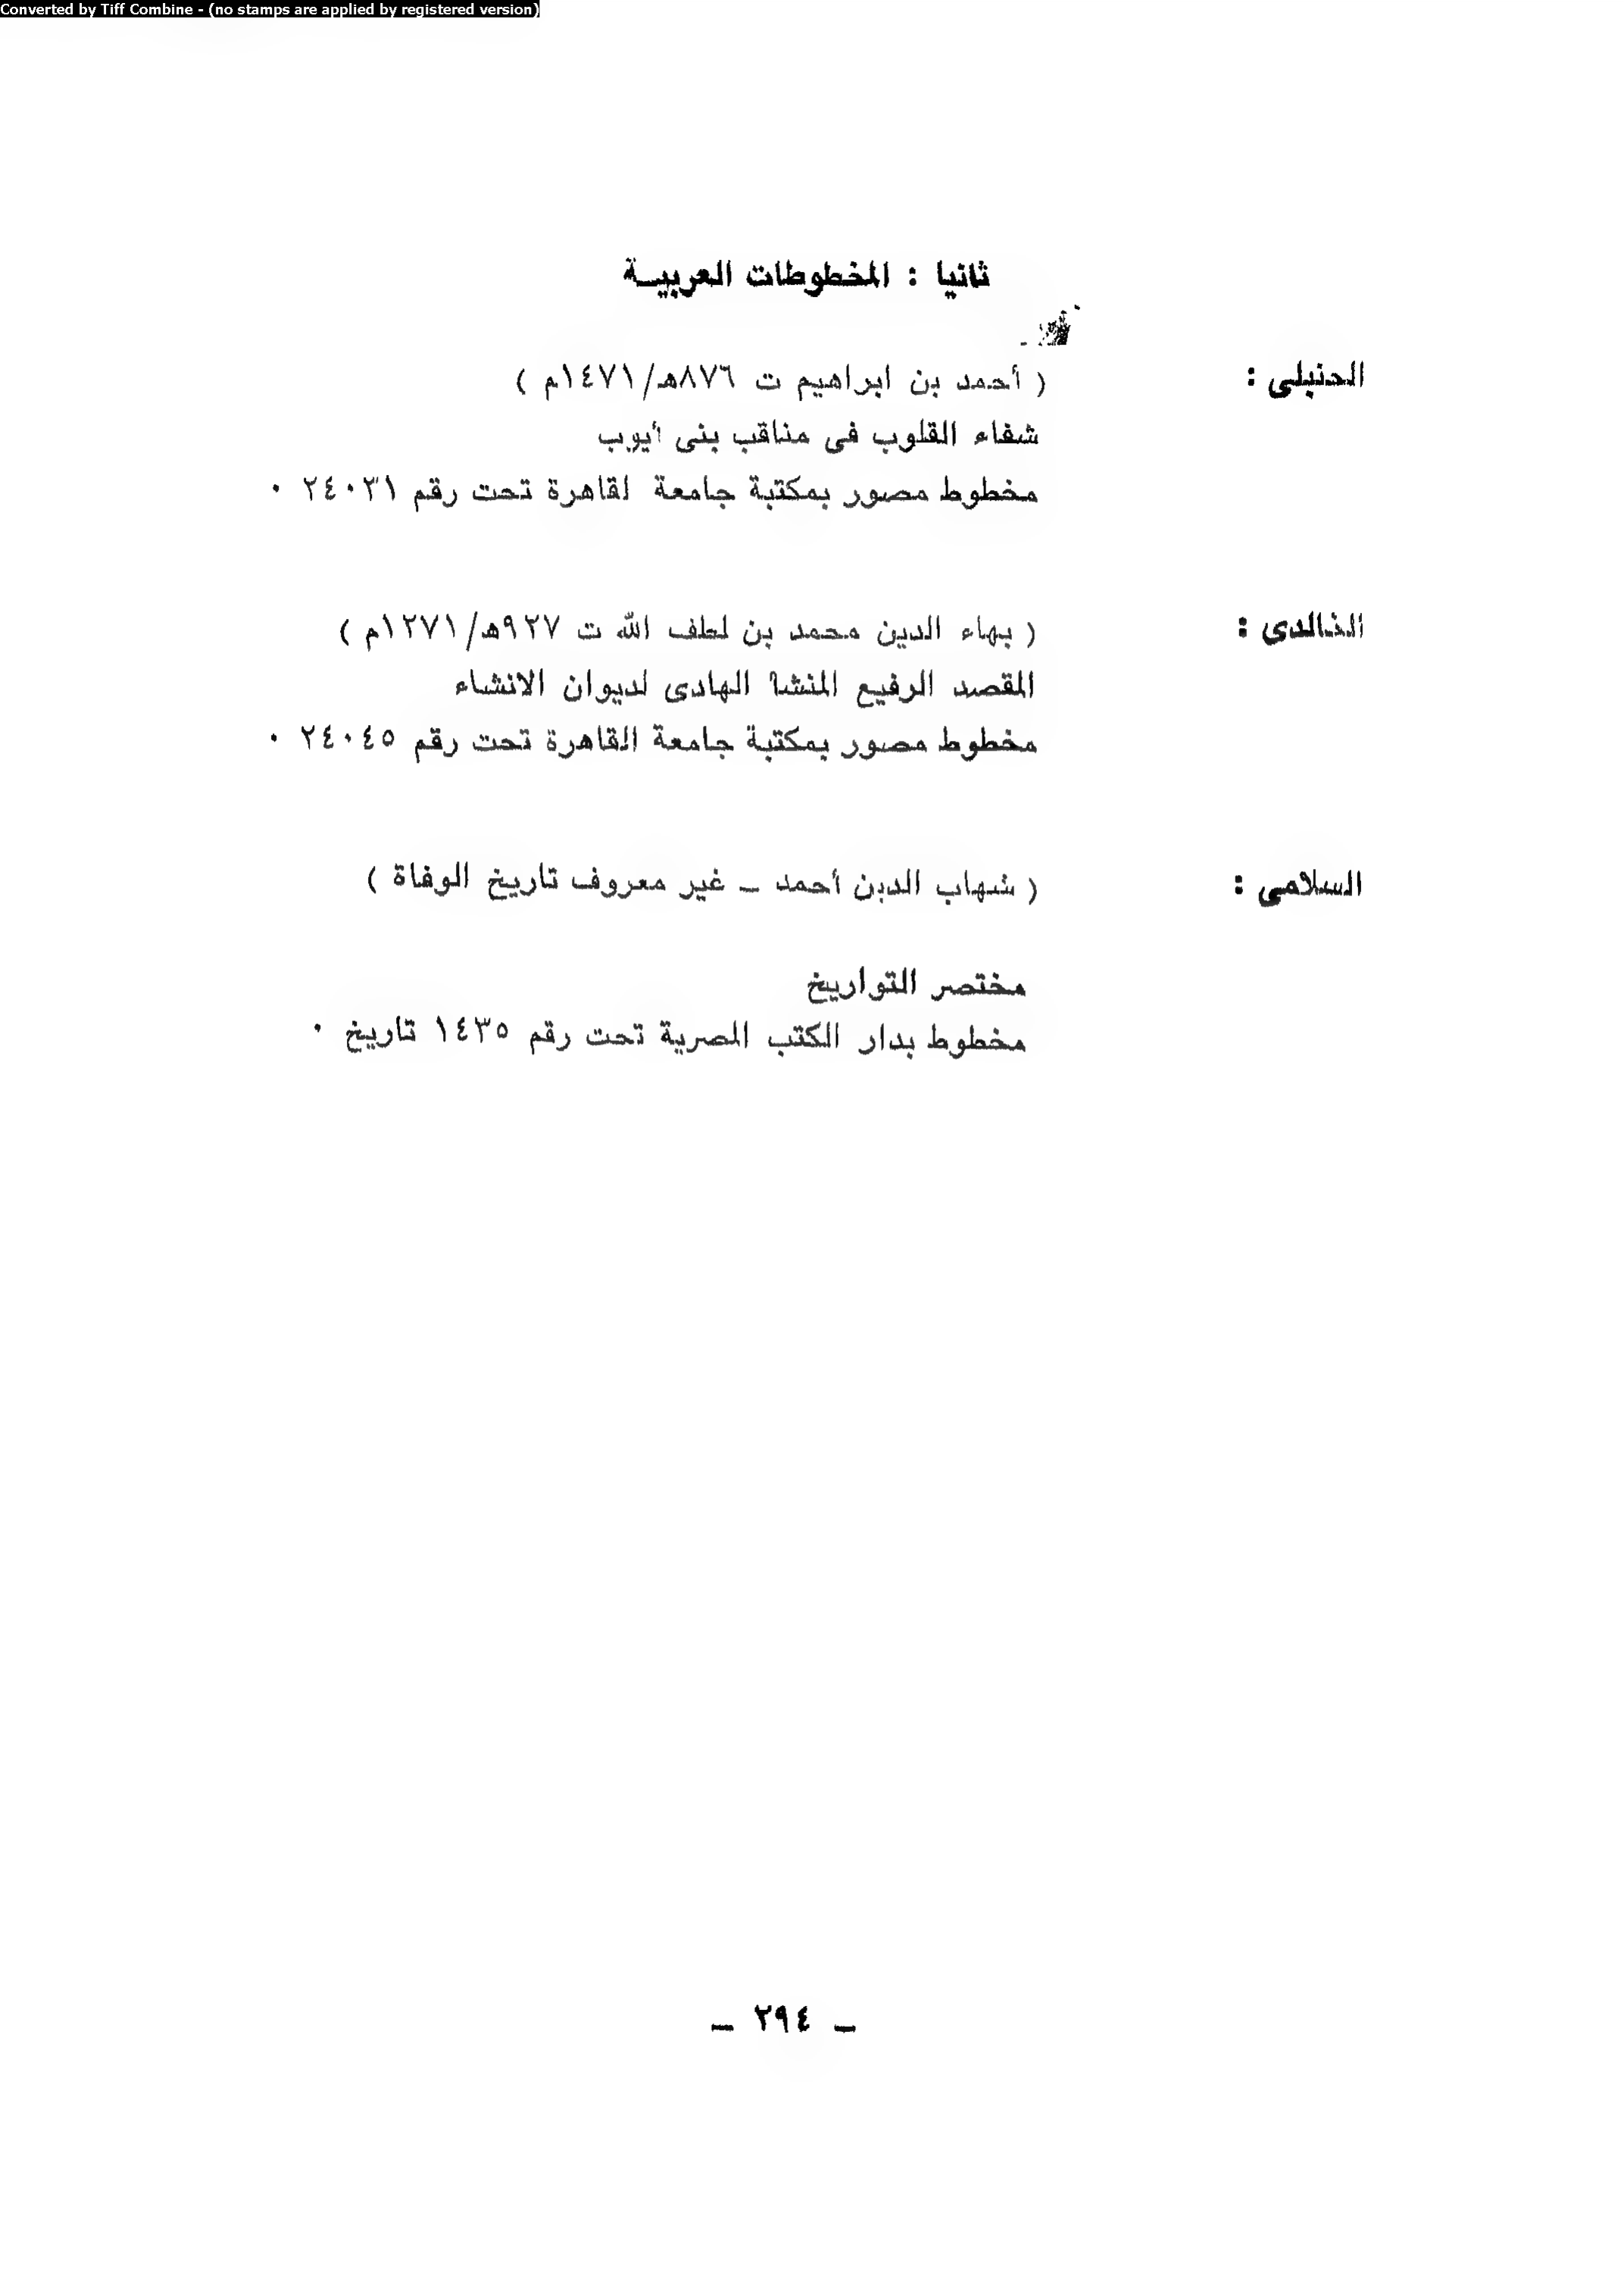 Converted by Tiff Combine - (no stamps are applied by registered version)
ثانيا : المخطوطات العربيـة
الحنبلى : ( أحمد بن ابراهيم ت ٨٧٦هـ/١٤٧١م )
شفاء القلوب فى مناقب بنى أيوب
مخطوط مصور بمكتبة جامعة لقاهرة تحت رقم ٢٤٠٣١ ٠
الخالدى : ( بهاء الدين محمد بن لطف الله ت ٩٢٧هـ/١٢٧١م )
المقصد الرفيع المنشا الهادى لديوان الانشاء
مخطوط مصور بمكتبة جامعة القاهرة تحت رقم ٢٤٠٤٥ ٠
السلامى : ( شهاب الدين أحمد ــ غير معروف تاريخ الوفاة )
مختصر التواريخ
مخطوط بدار الكتب المصرية تحت رقم ١٤٣٥ تاريخ ٠
ــ ٢٩٤ ــ